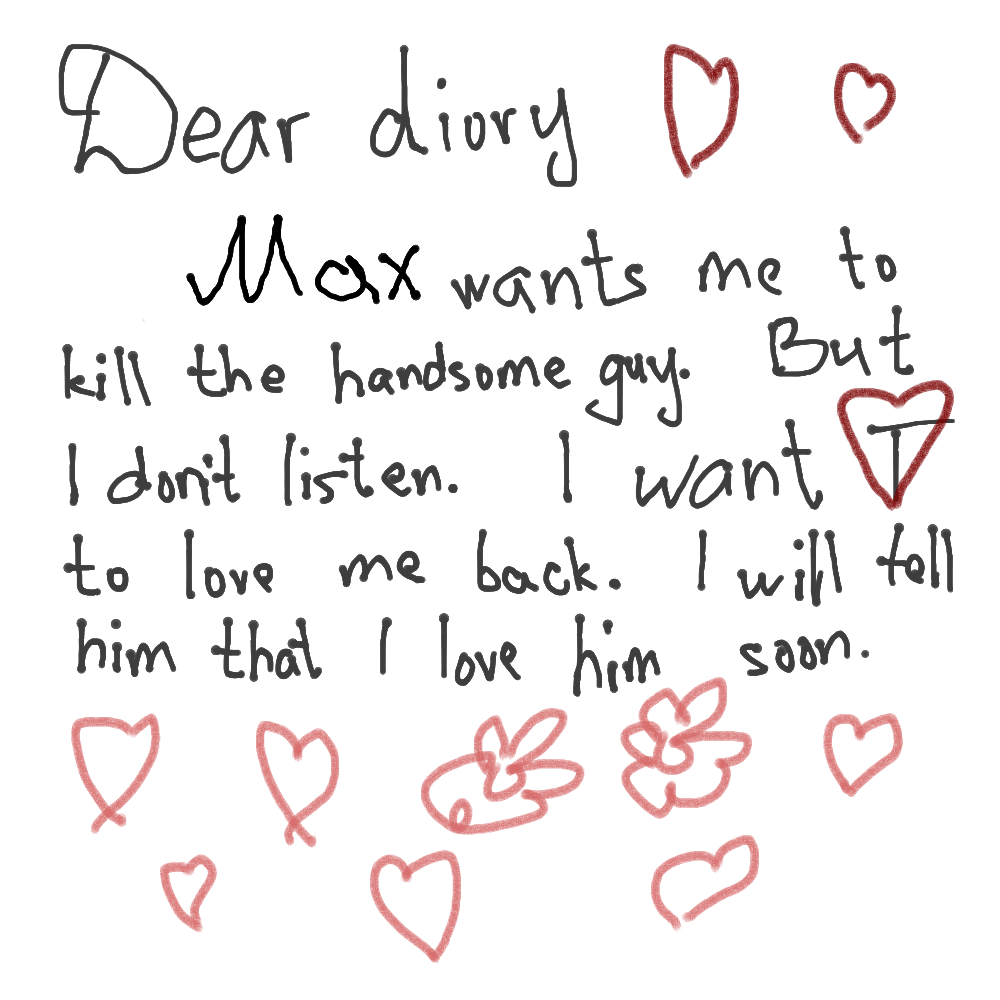 Dear diory
Max wants me to
kill the handsome guy. But
I don't listen. I want T
to love me back. I will tell
him that I love him soon.